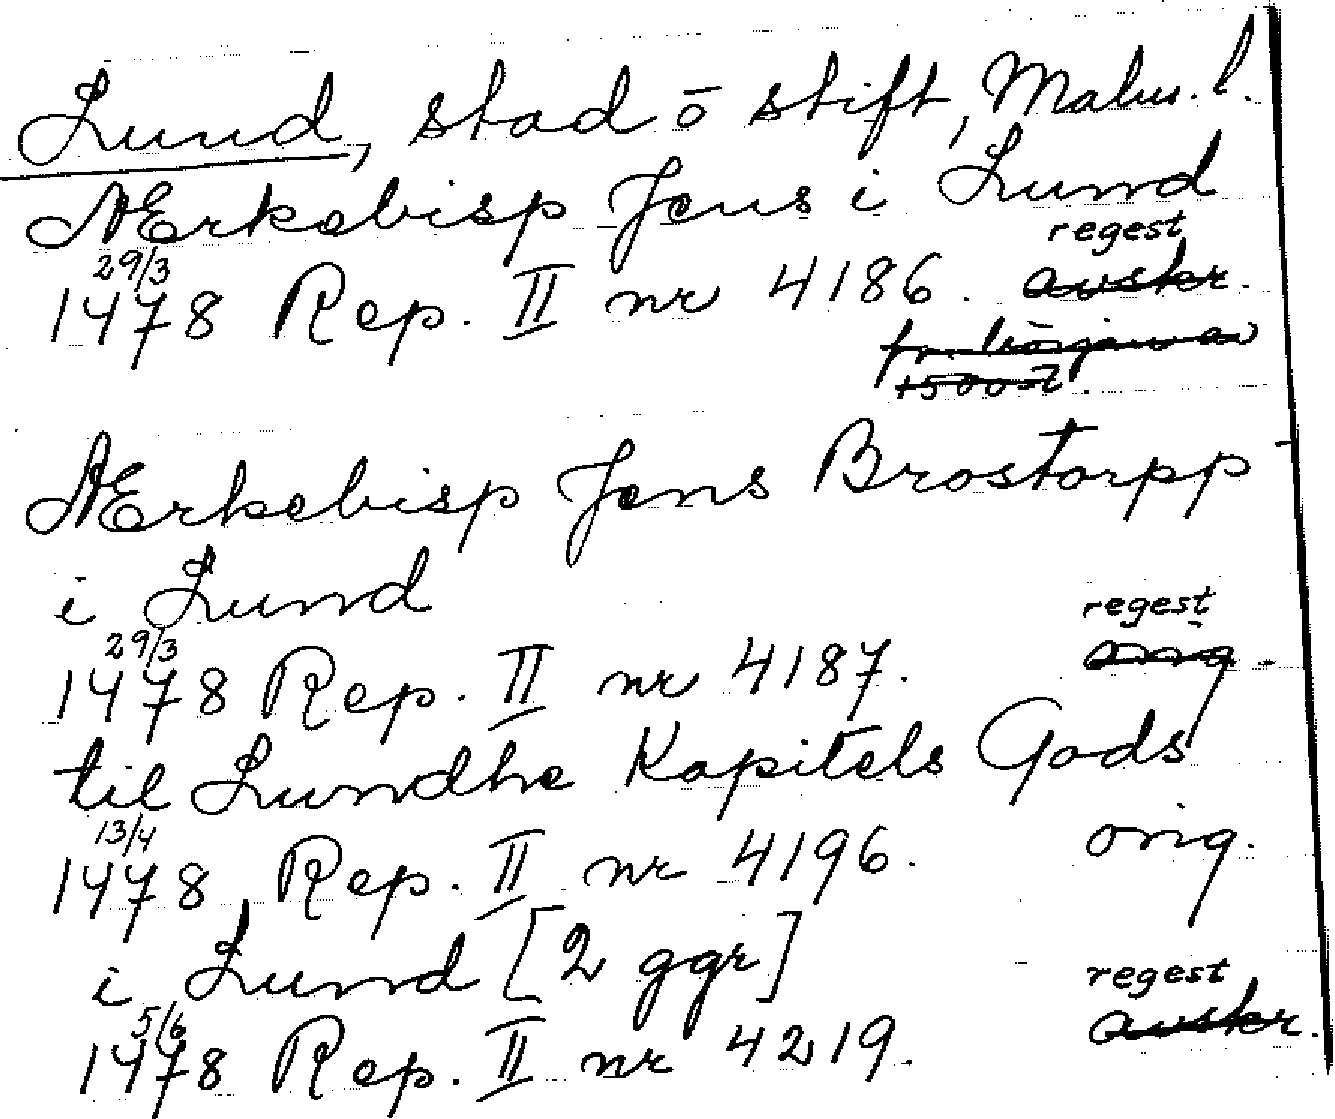 Lund, stad o stift, Malm. l.
Ærkebisp Jens i Lund
regest
29/3
1478 Rep. II nr 4186. avskr.
fr. början av
1500-t.
Ærkebisp Jens Brostorpp
i Lund
regest
29/3
1478 Rep. II nr 4187. orig.
til Lundhe Kapitels Gods
13/4
1478 Rep. II nr 4196. orig.
i Lund [2 ggr]
regest
5/6
1478 Rep. II nr 4219. avskr.